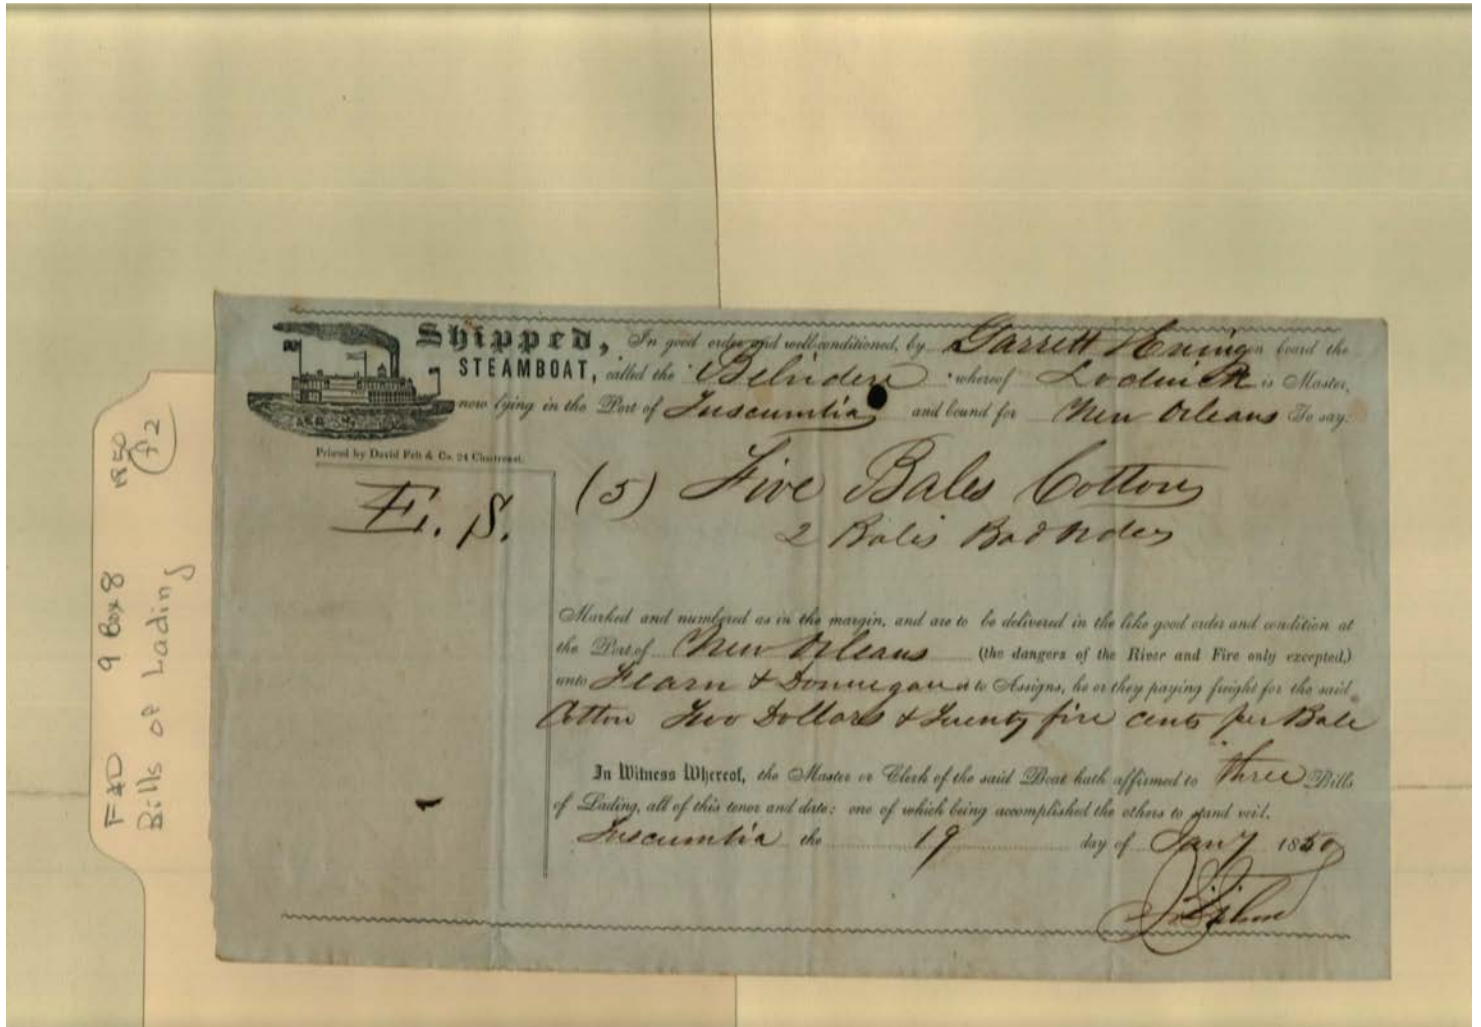 Shipped, In good order and well-conditioned, by Garrett on board the
STEAMBOAT, called the Belvidere whereof Lodwick is Master,
now lying in the Port of Tuscumbia and bound for New Orleans To say:
Printed by David Felt & Co. 24 Chartres st.
E. S.
(5) Five Bales Cotton
2 Bales Bad Order
Marked and numbered as in the margin, and are to be delivered in the like good order and condition at
the Port of New Orleans (the dangers of the River and Fire only excepted,)
unto Fearn & Donnegan or to Assigns, he or they paying freight for the said
Cotton Two Dollars & Twenty five cents per Bale
In Witness Whereof, the Master or Clerk of the said Boat hath affirmed to three Bills
of Lading, all of this tenor and date: one of which being accomplished the others to stand void.
Tuscumbia the 19 day of Jany 1850
F&D 9 Box 8 1850
f2
Bills of Lading